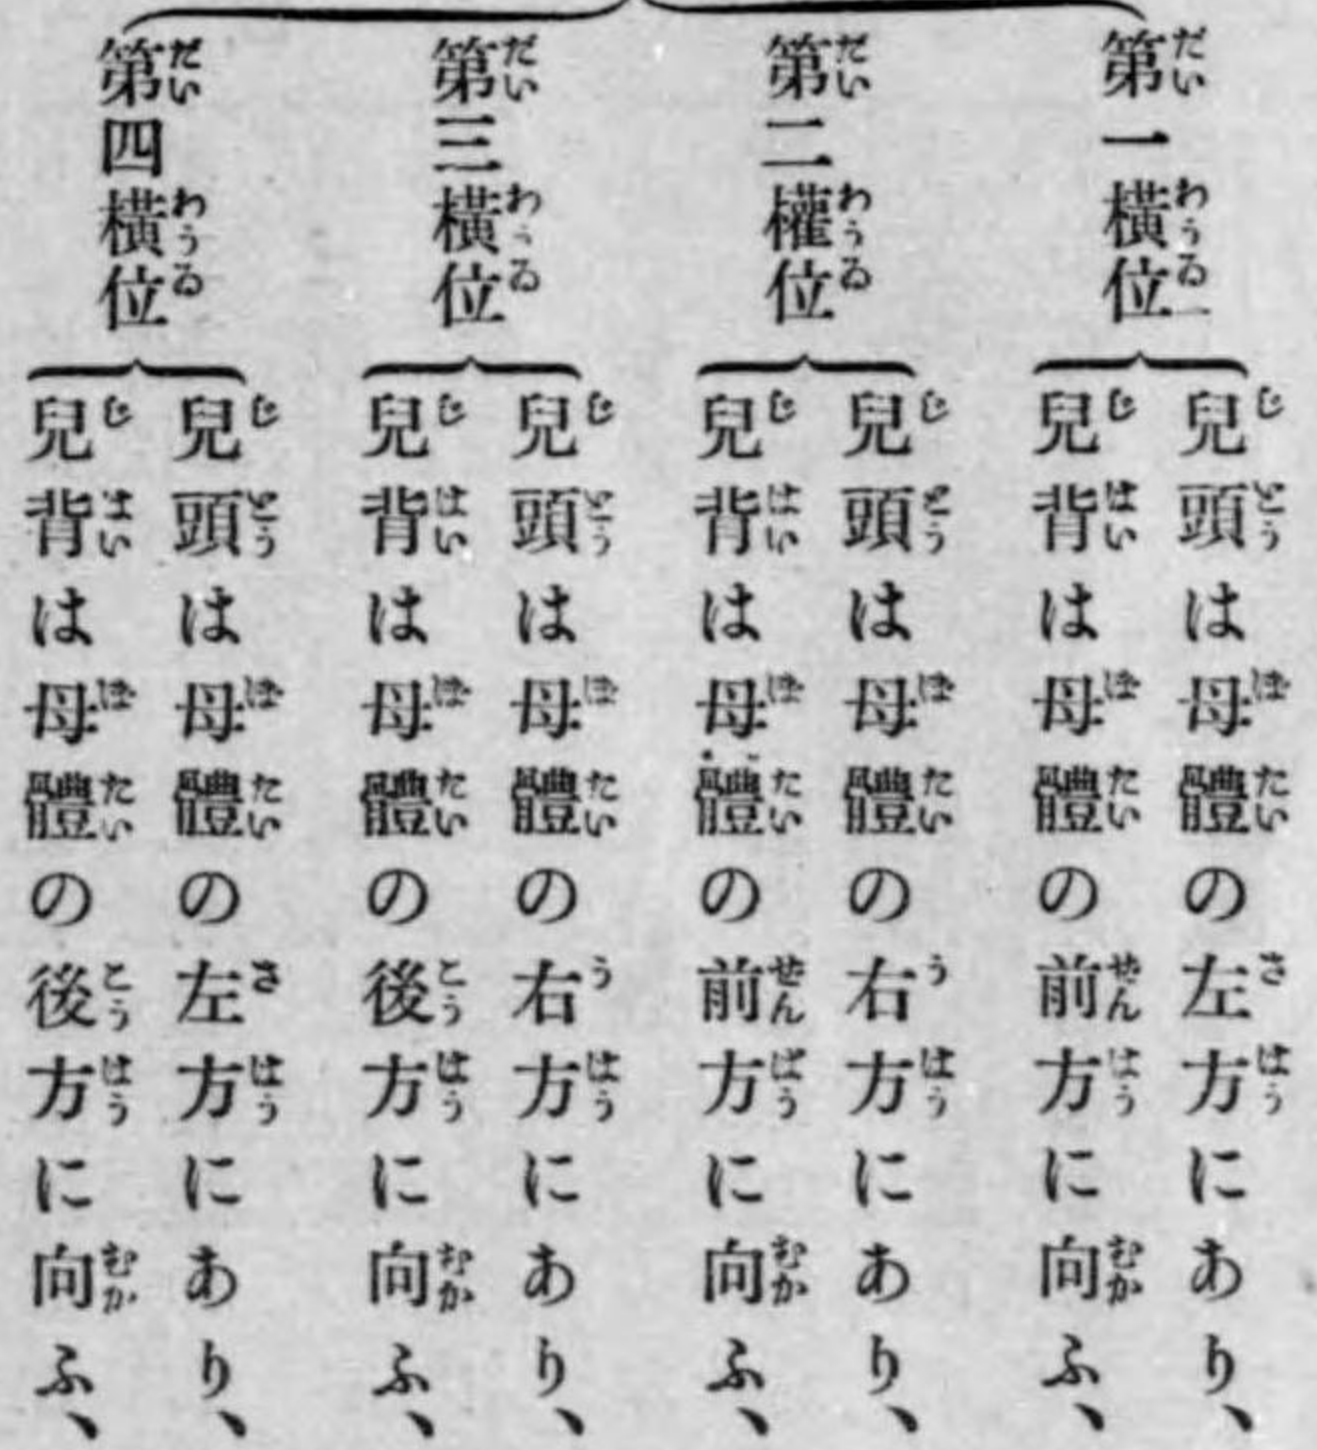 第一橫位
兒頭は母體の左方にあり、
兒背は母體の前方に向ふ、
第二權位
兒頭は母體の右方にあり、
兒背は母體の前方に向ふ、
第三橫位
兒頭は母體の右方にあり、
兒背は母體の後方に向ふ、
第四橫位
兒頭は母體の左方にあり、
兒背は母體の後方に向ふ、